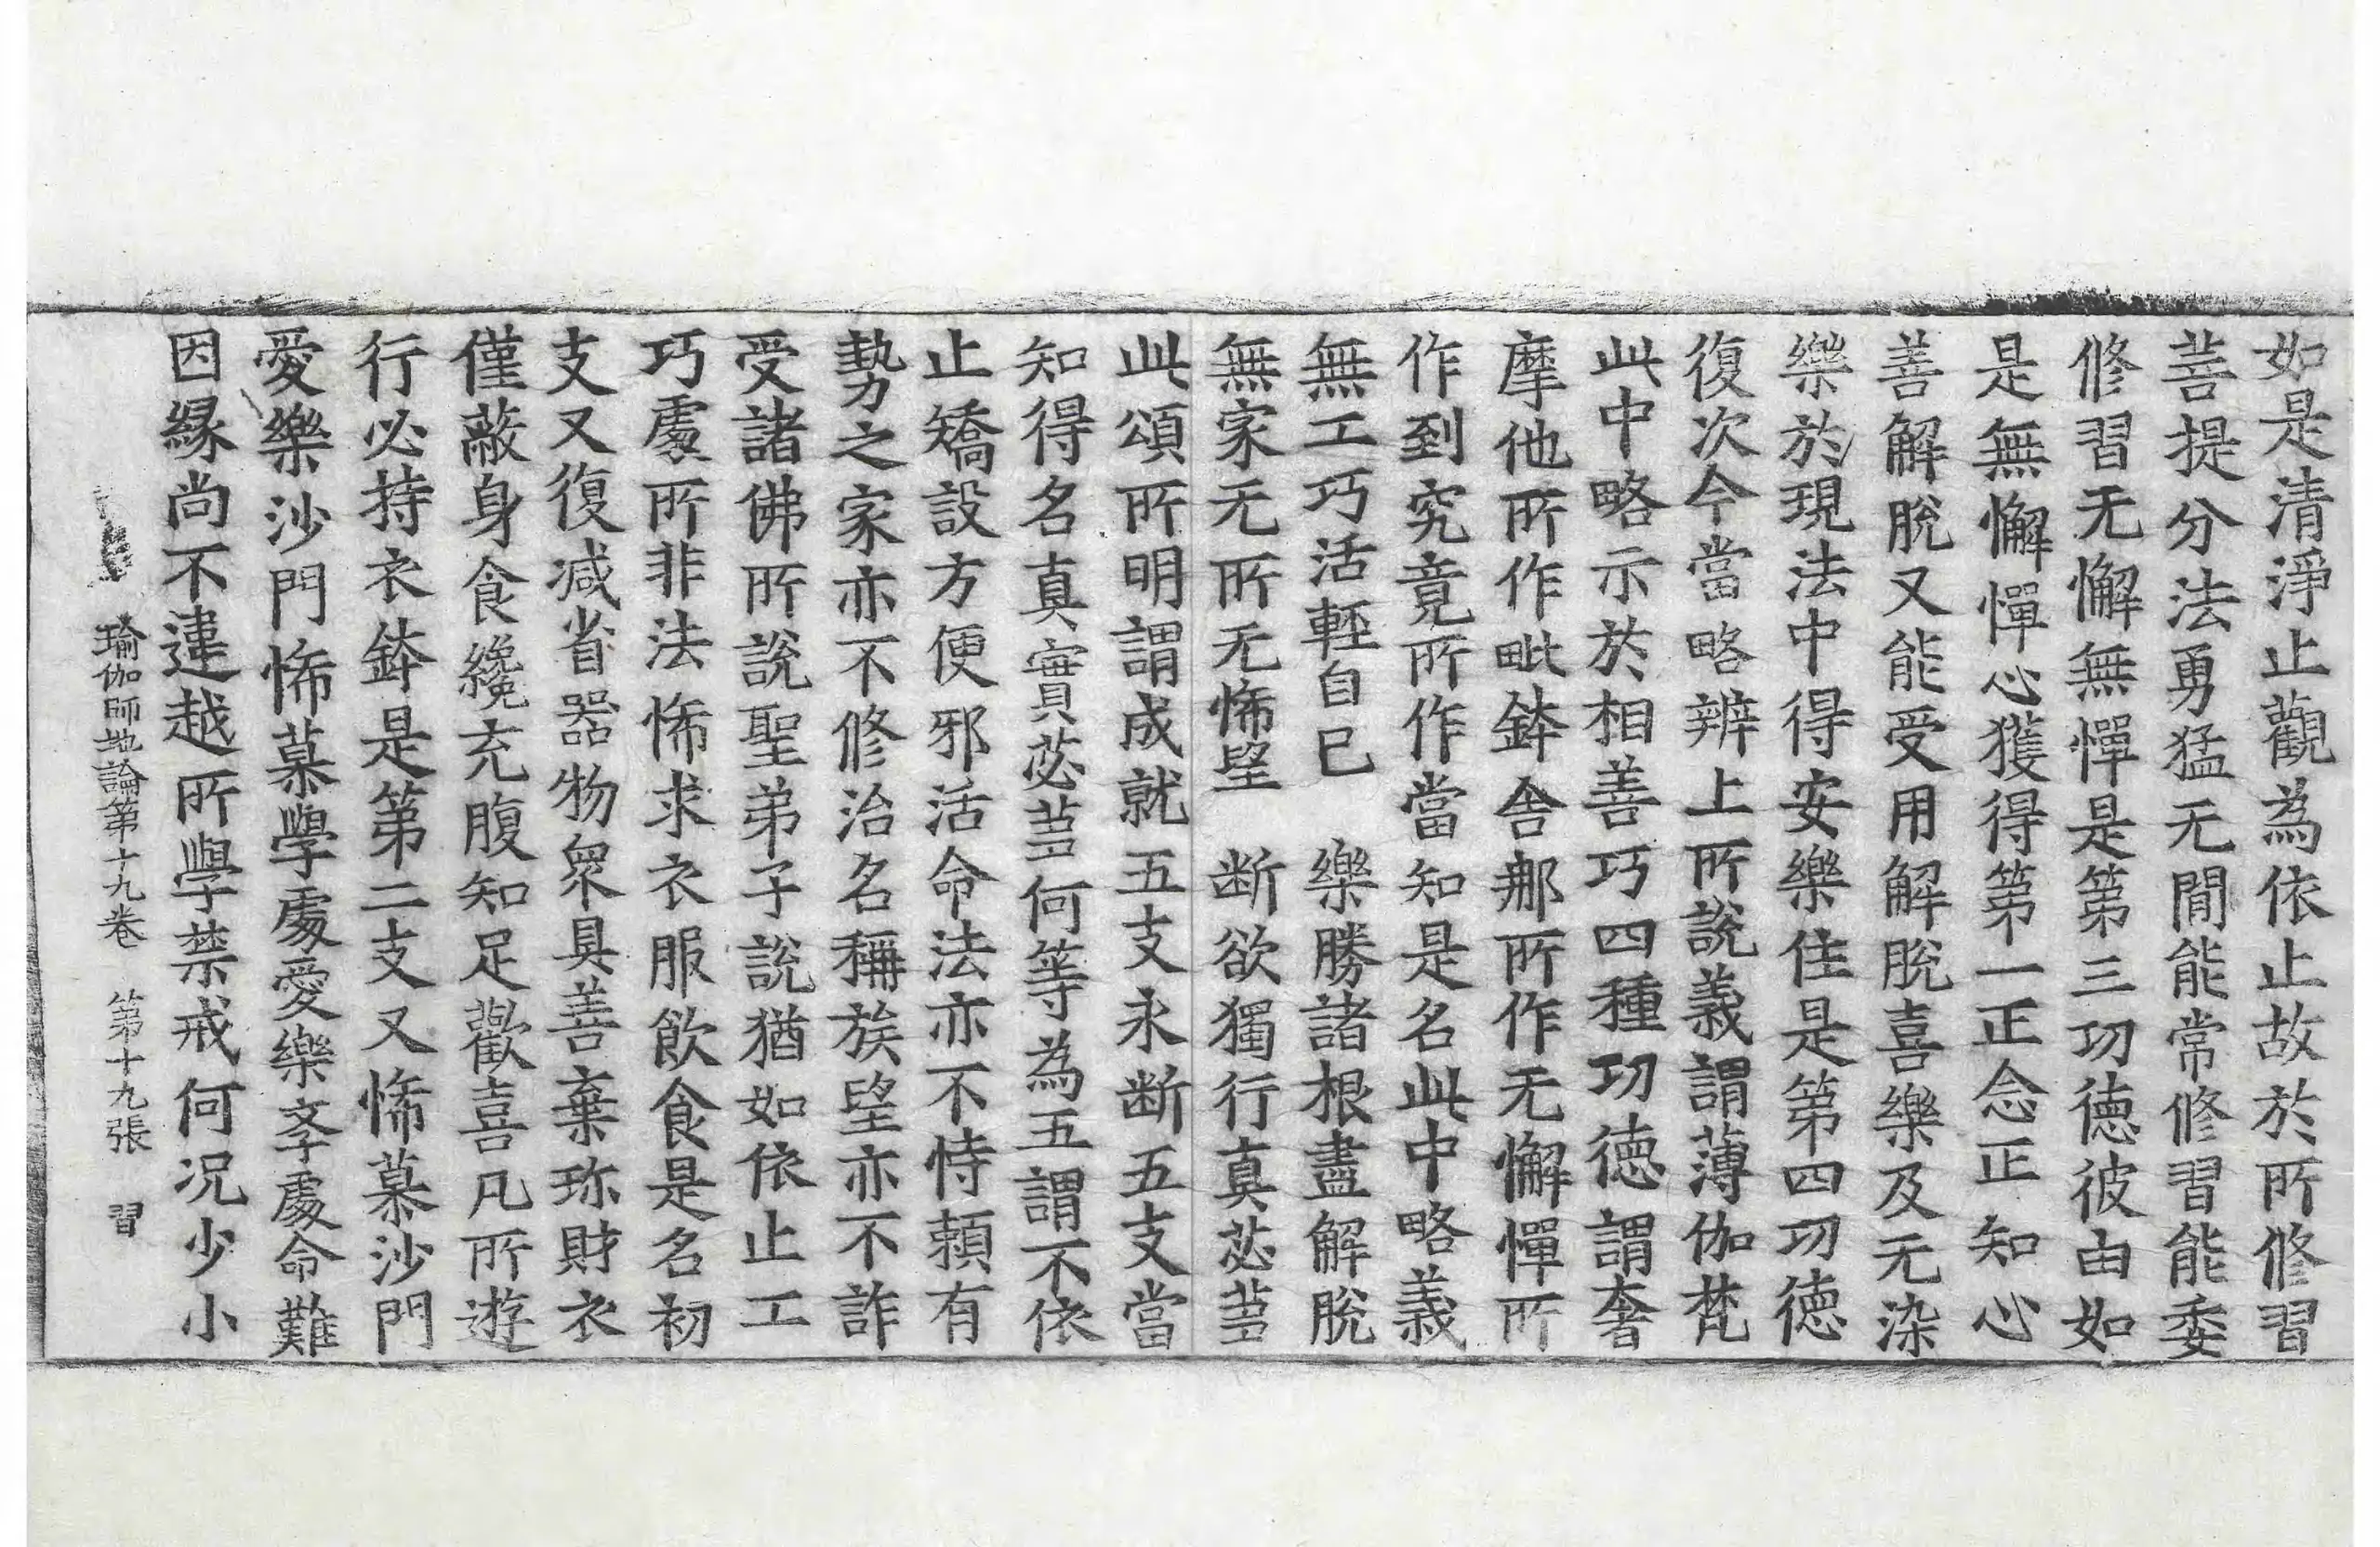 如是清淨止觀為依止故於所修習
菩提分法勇猛无間能常修習能委
修習无懈無憚是第三功德彼由如
是無懈憚心獲得第一正念正知心
善解脫又能受用解脫喜樂及无染
樂於現法中得安樂住是第四功德
復次今當略辨上所說義謂薄伽梵
此中略示於相善巧四種功德謂奢
摩他所作毗鉢舍那所作无懈憚所
作到究竟所作當知是名此中略義
無工巧活輕自己　樂勝諸根盡解脫
無家无所无悕望　断欲獨行真苾蒭
此頌所明謂成就五支永断五支當
知得名真實苾蒭何等為五謂不依
止矯設方便邪活命法亦不恃賴有
勢力之家亦不修治名稱族望亦不詐
受諸佛所說聖弟子說猶如依止工
巧處所非法悕求衣服飲食是名初
支又復減省器物衆具善棄珎財衣
僅蔽身食纔充腹知足歡喜凡所遊
行必持衣鉢是第二支又悕慕沙門
愛樂沙門悕慕學處愛樂學處命難
因緣尚不違越所學禁戒何况少小
瑜伽師地論第十九卷　第十九張　習